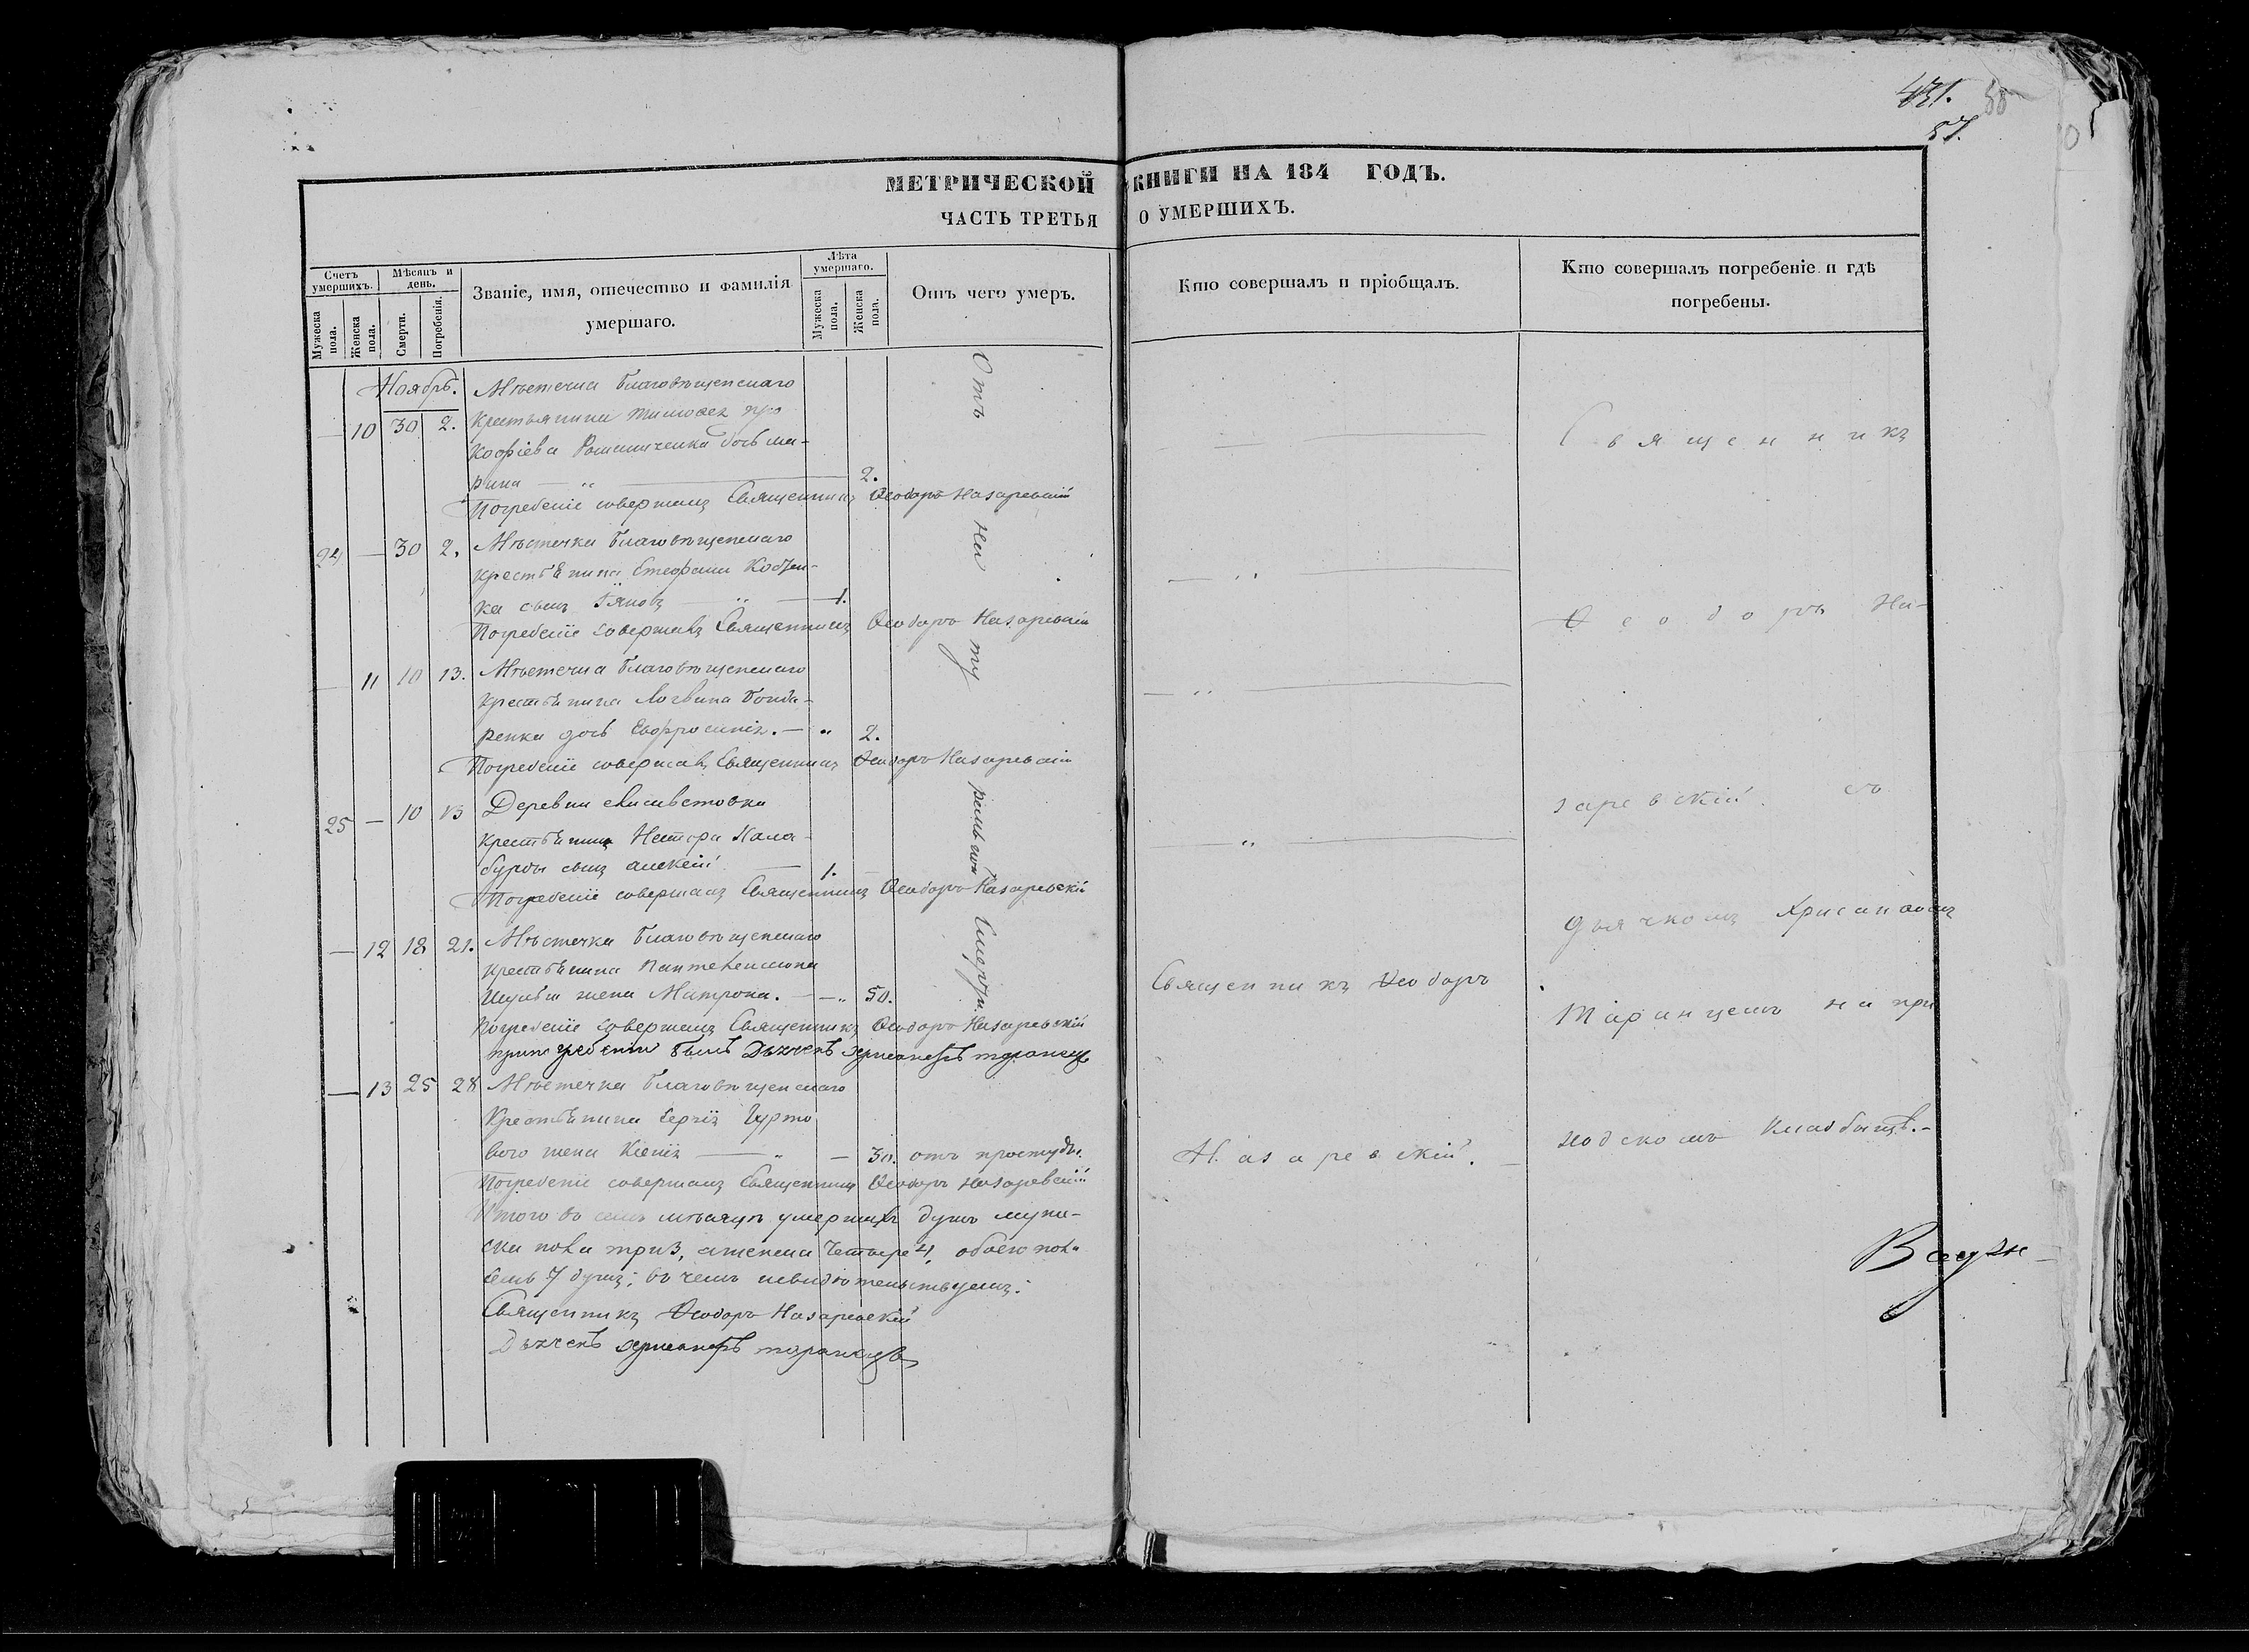 431.
57.
МЕТРИЧЕСКОЙ КНИГИ НА 184 ГОДЪ.
ЧАСТЬ ТРЕТЬЯ О УМЕРШИХЪ.
Счетъ умершихъ.
Мужеска пола.
Женска пола.
Мѣсяцъ и день.
Смерти.
Погребенія.
Званіе, имя, отечество и фамилія умершаго.
Лѣта умершаго.
Мужеска пола.
Женска пола.
Отъ чего умеръ.
Кто совершалъ и пріобщалъ.
Кто совершалъ погребеніе и гдѣ погребены.
Ноябрь. Мѣстечка Благовѣщенскаго
— 10 30 2. Крестьянина Тимофея Про
кофіева дочь Ма-
рина — 2.
Погребеніе совершалъ Священникъ Ѳеодоръ Назаревскій
24 — 30 2. Мѣстечка Благовѣщенскаго
крестьянина Стефана Кобзи-
ка сынъ — 1.
Погребеніе совершалъ Священникъ Ѳеодоръ Назаревскій
— 11 10 13. Мѣстечка Благовѣщенскаго
крестьянина Логвина Бонда-
ренка дочь Евфросинія. — 2.
Погребеніе совершалъ Священникъ Ѳеодоръ Назаревскій
25 — 10 13 Деревни Елисаветовки
крестьянина Нестора Кала-
бурды сынъ Алексій — 1.
Погребеніе совершалъ Священникъ Ѳеодоръ Назаревскій
— 12 18 21. Мѣстечка Благовѣщенскаго
крестьянина Пантелеимона
жена Матрона. — 50.
Погребеніе совершалъ Священникъ Ѳеодоръ Назаревскій
при погребеніи былъ Дьячекъ Хрисанфъ Таранецъ
— 13 25 28 Мѣстечка Благовѣщенскаго
Крестьянина Сергія Гурто
вого жена Ксенія — 30. отъ простуды.
Погребеніе совершалъ Священникъ Ѳеодоръ Назаревскій
Итого въ семъ мѣсяцѣ умершихъ душъ муже-
ска пола три 3, а женска четыре 4, обоего пола
семь 7 душъ; въ чемъ и свидѣтельствуемъ:
Священникъ Ѳеодоръ Назаревскій
Дьячекъ Хрисанфъ Таранецъ
Отъ натуральной Смерти.
Священникъ Ѳеодоръ
Назаревскій.
Священникъ
Ѳеодоръ На-
заревскій съ
дьячкомъ Хрисанфомъ
Таранцемъ на при
ходскомъ кладбищѣ.